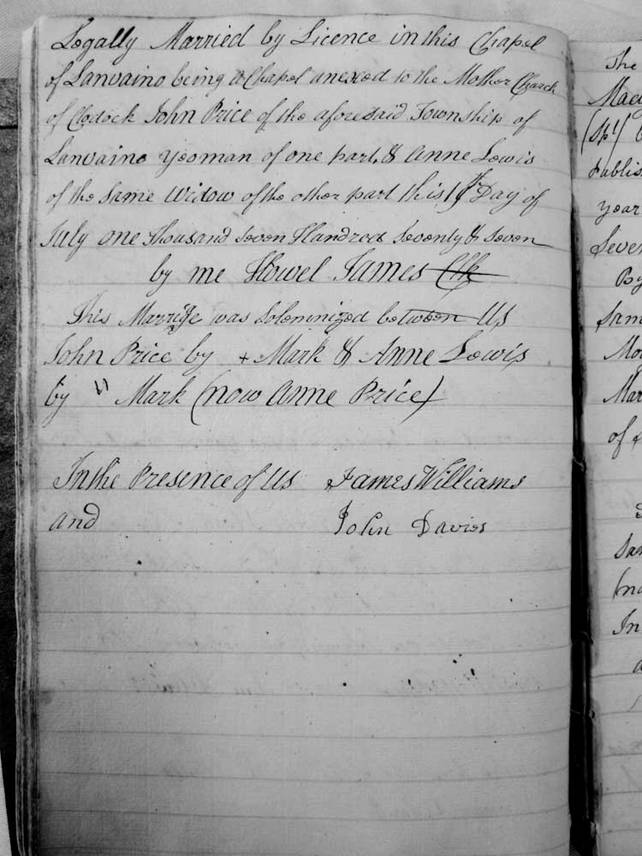 Legally Married by Licence in this Chapel
of Lanvaino being a Chapel anexed to the Mother Church
of Clodock John Price of the aforesaid Township of
Lanvaino Yeoman of one part, & Anne Lewis
of the same Widow of the other part this Day of
July one thousand Seven Hundred Seventy & Seven
by me Howel James Clk
This Marriage was Solemnized between Us
John Price by + Mark & Anne Lewis
by " Mark (now Anne Price)
In the Presence of Us James Williams
and John Davies
The
(Sp!)
Publis
year
Seven
By
Sam
Mo
Mar
of
Sa
(no
In